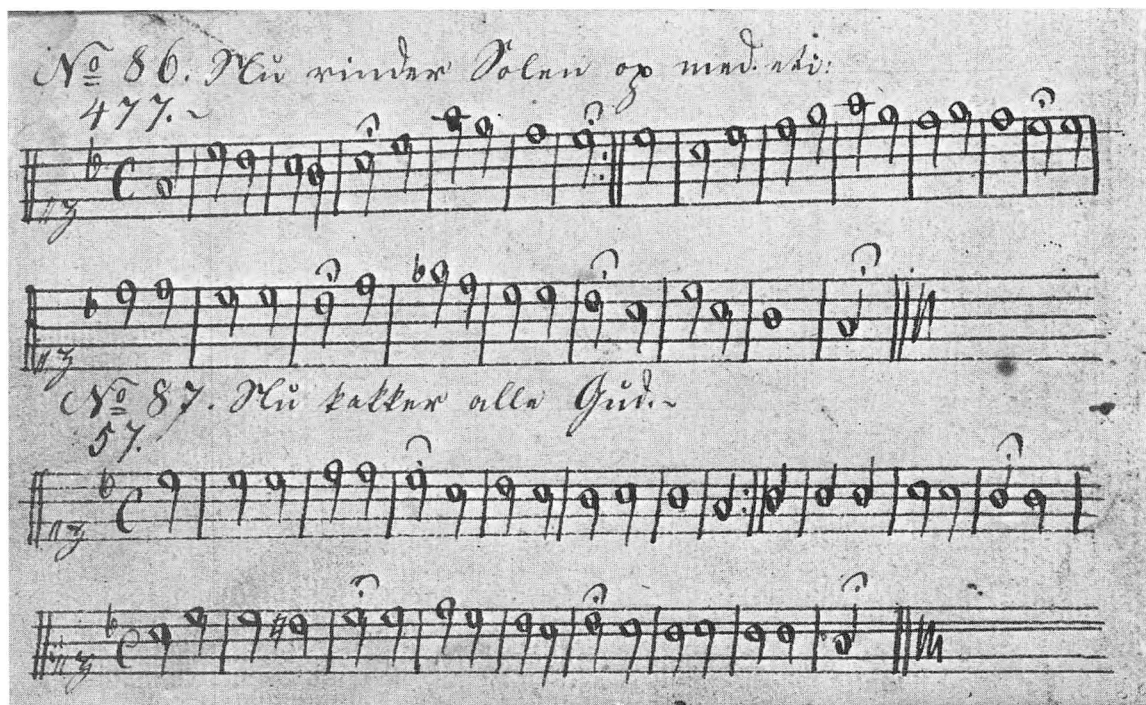 No 86. Nu rinder Solen op med. eti:
477.
No 87. Nu takker alle Gud.
57.